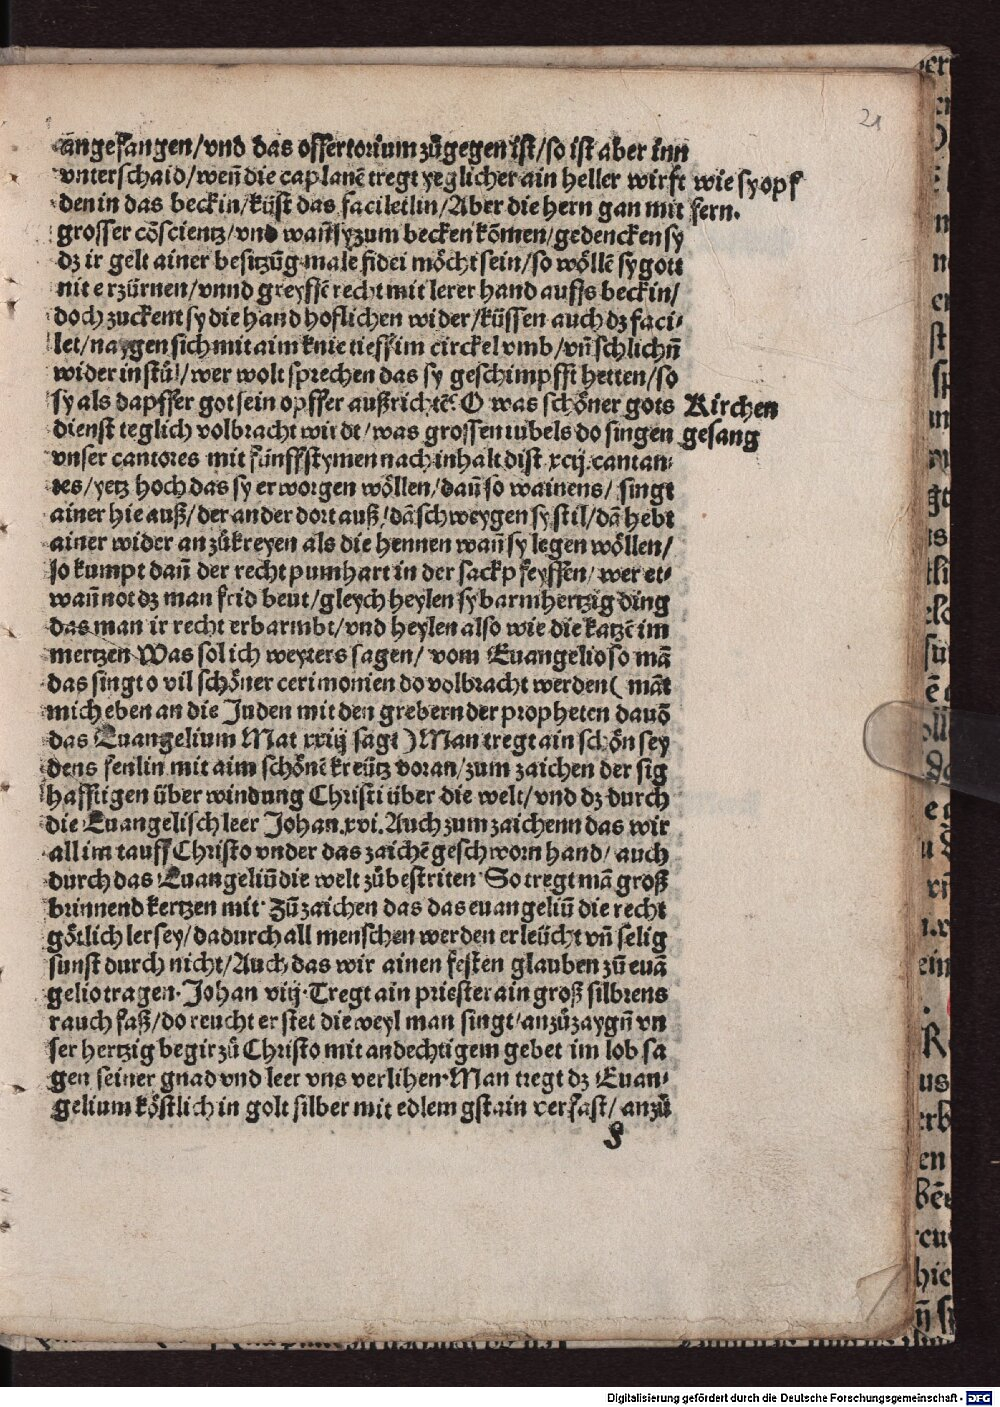 21
angefangen/vnd das offertorium zůgegen ist/so ist aber inn
vnterschaid/weñ die caplanē tregt yeglicher ain heller wirft
wie sy opf
den in das beckin/küst das faciletlin/Aber die hern gan mit
fern.
grosser cōscientz/vnd wañ sy zum becken kōmen/gedencken sy
dz ir gelt ainer besitzūg male fidei möcht sein/so wöllē sy gott
nit erzürnen/vnnd greyffē recht mit lerer hand auffs beckin/
doch zuckent sy die hand hoflichen wider/küssen auch dz faci⸗
let/naygen sich mit aim knie tieff im circkel vmb/vñ schlichñ
wider in stůl/wer wolt sprechen das sy geschimpfft hetten/so
sy als dapffer got sein opffer außrichtē. O was schöner gots
Kirchen
dienst teglich volbracht wirdt/was grossen iubels do singen
gesang
vnser cantores mit fünff stymen nach inhalt dist xcij. cantan⸗
tes/yetz hoch das sy erworgen wöllen/dañ so wainens/singt
ainer hie auß/der ander dort auß/dā schweygen sy stil/dā hebt
ainer wider an zůkreyen als die hennen wañ sy legen wöllen/
so kumpt dañ der recht pumhart in der sackpfeyffen/wer et⸗
wañ not dz man frid beut/gleych heylen sy barmhertzig ding
das man ir recht erbarmbt/vnd heylen also wie die katzē im
mertzen Was sol ich weyters sagen/vom Euangelio so mā
das singt o vil schöner cerimonien do volbracht werden( māt
mich eben an die Juden mit den grebern der propheten dauō
das Euangelium Mat xxiij sagt ) Man tregt ain schön sey
dens fenlin mit aim schönē kreütz voran/zum zaichen der sig
hafftigen überwindung Christi über die welt/vnd dz durch
die Euangelisch leer Johan.xvi. Auch zum zaichenn das wir
all im tauff Christo vnder das zaichē geschworn hand/auch
durch das Euangeliū die welt zůbestriten So tregt mā groß
brinnend kertzen mit. Zū zaichen das das euangeliū die recht
götlich ler sey/dadurch all menschen werden erleücht vñ selig
sunst durch nicht/Auch das wir ainen festen glauben zū euā
gelio tragen. Johan viij. Tregt ain priester ain groß silbrens
rauchfaß/do reucht er stet die weyl man singt/anzůzaygñ vn
ser hertzig begir zů Christo mit andechtigem gebet im lob sa
gen seiner gnad vnd leer vns verlihen. Man tregt dz Euan⸗
gelium köstlich in golt silber mit edlem gstain verfast/anzů
f
Digitalisierung gefördert durch die Deutsche Forschungsgemeinschaft - DFG